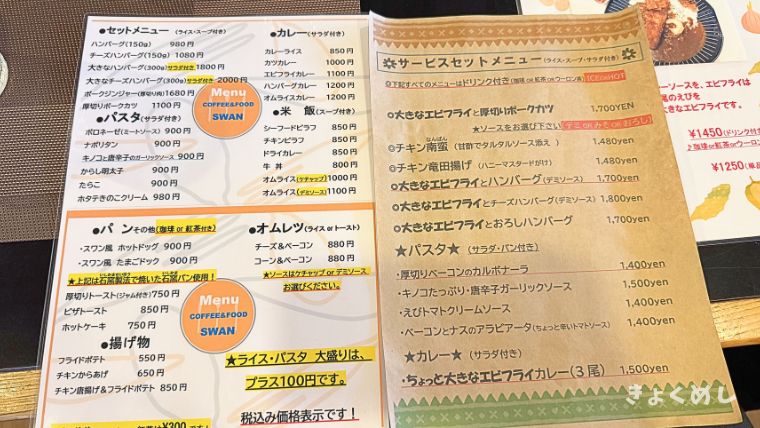 ●セットメニュー (ライス・スープ付き)
ハンバーグ(150g) 980円
チーズハンバーグ(150g) 1080円
大きなハンバーグ(300g)サラダ付き1800円
大きなチーズハンバーグ(300g)サラダ付き2000円
ポークジンジャー(厚切り肉)1680円
厚切りポークカツ 1100円
●パスタ(サラダ付き)
ボロネーゼ(ミートソース) 900円
ナポリタン 900円
キノコと唐辛子のガーリックソース 900円
からし明太子 900円
たらこ 900円
ホタテきのこクリーム 980円
Menu
COFFEE&FOOD
SWAN
●カレー(サラダ付き)
カレーライス 850円
カツカレー 1100円
エビフライカレー 1100円
ハンバーグカレー 1200円
オムライスカレー 1200円
●米 飯(スープ付き)
シーフードピラフ 850円
チキンピラフ 850円
ドライカレー 850円
牛 丼 800円
オムライス(ケチャップ) 1000円
オムライス(デミソース) 1100円
●パ ンその他(珈琲 or 紅茶付き)
・スワン風 ホットドッグ 900円
・スワン風 たまごドック 900円
★上記は石窯製法で焼いた石窯パン使用!
厚切りトースト(ジャム付き)750円
ピザトースト 850円
ホットケーキ 750円
●揚げ物
フライドポテト 550円
チキンからあげ 650円
チキン唐揚げ&フライドポテト 850円
Menu
COFFEE&FOOD
SWAN
●オムレツ(ライス or トースト)
チーズ&ベーコン 880円
コーン&ベーコン 880円
★ソースはケチャップ or デミソース
お選びください。
★ライス・パスタ 大盛りは、
プラス100円です。
税込み価格表示です!
¥300
サービスセットメニュー(ライス・スープ・サラダ付き)
◎下記すべてのメニューはドリンク付き(珈琲 OR 紅茶 OR ウーロン茶) ICE OR HOT
◎大きなエビフライと厚切りポークカツ 1,700YEN
★ソースをお選び下さい(デミ OR みそ OR おろし)
◎チキン南蛮 (甘酢でタルタルソース添え) 1,480yen
なんばん
◎チキン竜田揚げ (ハニーマスタードがけ) 1,480yen
◎大きなエビフライとハンバーグ(デミソース) 1,700yen
◎大きなエビフライとチーズハンバーグ(デミソース) 1,800yen
◎大きなエビフライとおろしハンバーグ 1,700yen
★パスタ★ (サラダ・パン付き)
・厚切りベーコンのカルボナーラ 1,400yen
・キノコたっぷり・唐辛子ガーリックソース 1,500yen
・えびトマトクリームソース 1,400yen
・ベーコンとナスのアラビアータ(ちょっと辛いトマトソース) 1,400yen
★カレー★ (サラダ付き)
・ちょっと大きなエビフライカレー(3尾) 1,500yen
ーソースを、エビフライは
尾のえびを
大きなエビフライです。
¥1450(ドリンク付き
♪珈琲or紅茶orウーロン
¥1250(単品
きよくめし